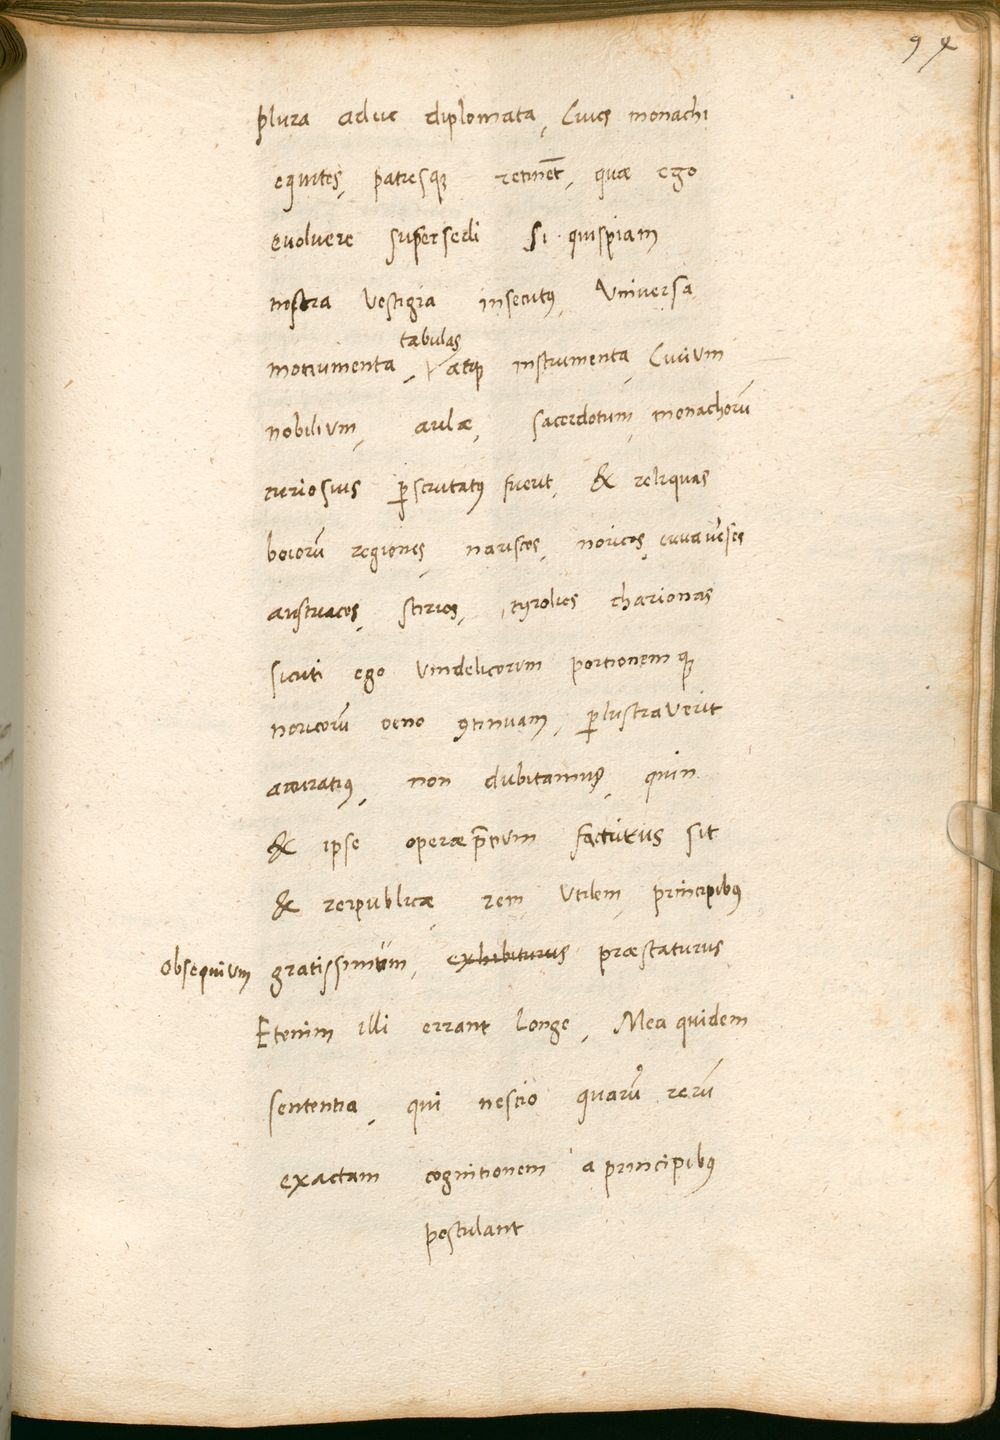 94
plura aduc diplomata, Ciues monachi
equites, patresq; retinēt, quæ ego
euoluere supersedi Si quispiam
nostra vestigia insecutꝰ Vniversa
tabulas
monumenta, atqꝫ instrumenta, Ciuium
nobilium, aulæ, sacerdotum, monachorū
curiosius ꝑscrutatꝰ fuerit, & reliquas
boiorū regiones, nariscos, noricos,
austriacos, stirios, tyrolios charionas
sicuti ego vindelicorum portionemq;
noricorū oeno ꝯtinuam, ꝑlustraverit
accuratiꝰ, non dubitamus, quin
& ipse operæp̄cium facturus sit
& reipublicæ rem vtilem, principibꝰ
Obsequium gratissimum, exhibiturus præstaturus
Etenim illi errant longe, Mea quidem
sententia, qui nescio quarū rerū
exactam cognitionem a principibꝰ
postulant